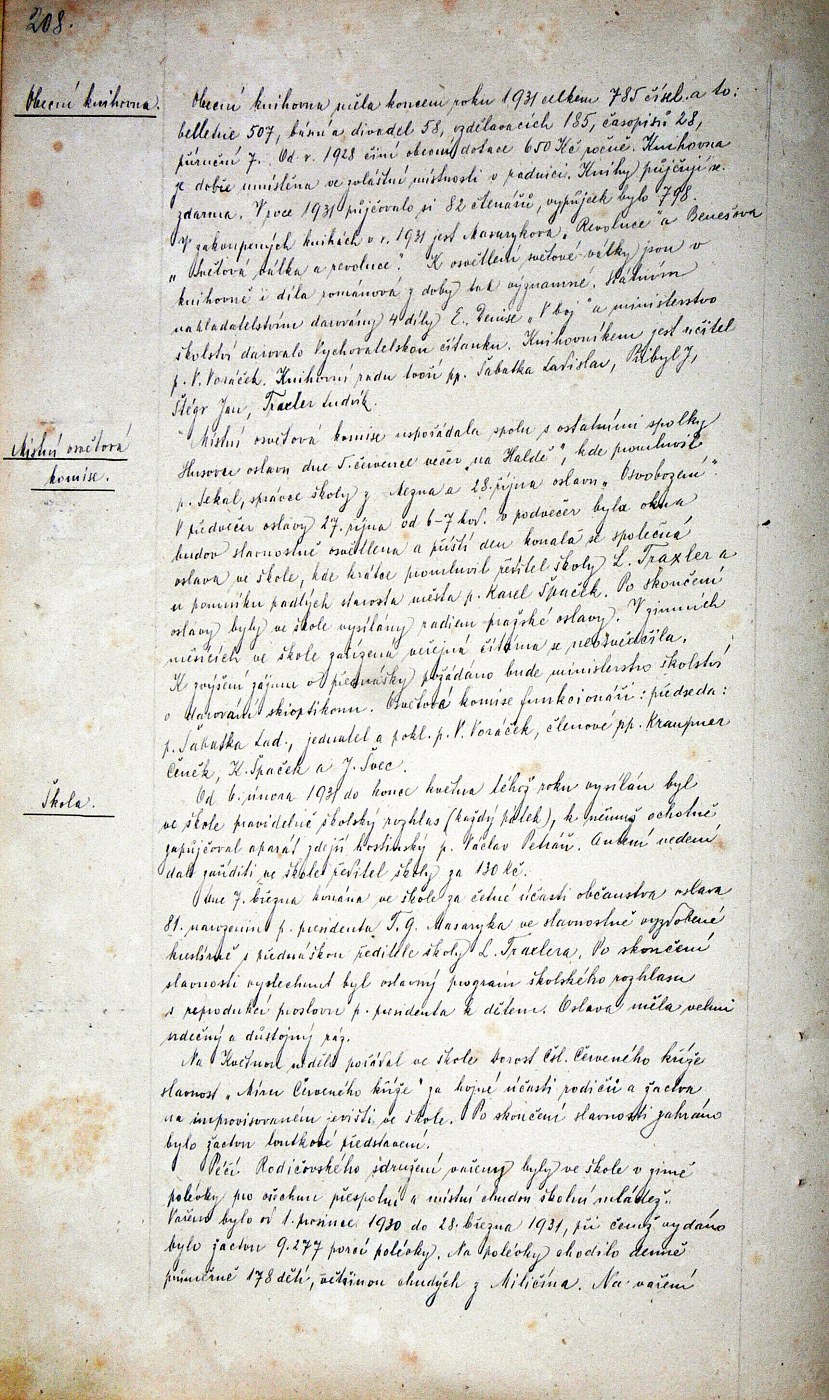 208.
Obecní knihovna.
Obecní knihovna měla koncem roku 1931 celkem 785 čísel a to:
belletrie 507, básní a divadel 58, vzdělavacích 185, časopisů 28,
příruční 7. Od r. 1928 činí obecní dotace 650 Kč ročně. Knihovna
je dobře umístěna ve zvláštní místnosti v radnici. Knihy půjčují se
zdarma. V roce 1931 půjčovalo si 82 čtenářů, výpůjček bylo 798.
V zakoupených knihách v r. 1931 jest Masarykova „Revoluce" a Benešova
„Světová válka a revoluce". K osvětlení světové války jsou v
knihovně i díla románová z doby tak významné. Státním
nakladatelstvím darovány 4 díly E. Denise „V boj" a ministerstvo
školství darovalo Vychovatelskou čítanku. Knihovníkem jest učitel
p. V. Voráček. Knihovní radu tvoří pp. Šabatka Ladislav, Přibyl J.,
Štěgr Jan, Traxler Ludvík.
Místní osvětová
komise.
Místní osvětová komise uspořádala spolu s ostatními spolky
Husovu oslavu dne 5. července večer „na Haldě", kde promluvil
p. Sekal, správce školy z Nezna a 28. října oslavu „Osvobození".
V předvečer oslavy 27. října od 6-7 hod. v podvečer byla okna
budov slavnostně osvětlena a příští den konala se společná
oslava ve škole, kde krátce promluvil ředitel školy L. Traxler a
u pomníku padlých starosta města p. Karel Špaček. Po skončení
oslavy byly ve škole vysílány radiem pražské oslavy. V zimních
měsících ve škole zařízená veřejná čítárna se neosvědčila.
K zvýšení zájmu o přednášky požádáno bude ministerstvo školství
o darování skioptikonu. Osvětová komise funkcionáři: předseda:
p. Šabatka Lad., jednatel a pokl. p. V. Voráček, členové pp. Kraupner
Čeněk, K. Špaček a J. Švec.
Škola.
Od 6. února 1931 do konce května téhož roku vysílán byl
ve škole pravidelně školský rozhlas (každý pátek), k němuž ochotně
zapůjčoval aparát zdejší hostinský p. Václav Petráň. Antení vedení
dal zaříditi ve škole ředitel školy za 130 Kč.
Dne 7. března konána ve škole za četné účasti občanstva oslava
81. narozenin p. presidenta T. G. Masaryka ve slavnostně vyzdobené
kreslírně s přednáškou ředitele školy L. Traxlera. Po skončení
slavnosti vyslechnut byl oslavný program školského rozhlasu
s reprodukcí proslovu p. presidenta k dětem. Oslava měla velmi
srdečný a důstojný ráz.
Na Květnou neděli pořádal ve škole Dorost Čsl. Červeného kříže
slavnost „Míru Červeného kříže" za hojné účasti rodičů a žactva
na improvisovaném jevišti ve škole. Po skončení slavnosti zahráno
bylo žactvu loutkové představení.
Péčí Rodičovského sdružení vařeny byly ve škole v zimě
polévky pro všechnu přespolní a místní chudou školní mládež.
Vařeno bylo od 1. prosince 1930 do 28. března 1931, při čemž vydáno
bylo žactvu 9.277 porcí polévky. Na polévky chodilo denně
průměrně 178 dětí, většinou chudých z Miličína. Na vaření